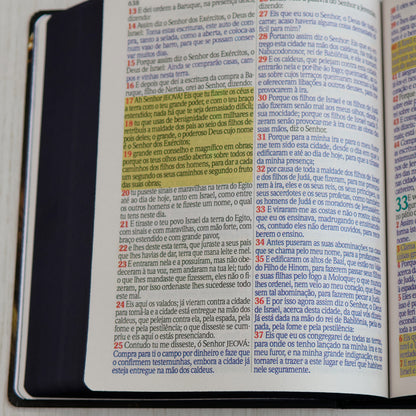 638
13 E dei ordem a Baruque, na presença deles,
dizendo:
14 Assim diz o Senhor dos Exércitos, o Deus
de Israel: Toma estas escrituras, este auto de com-
pra, tanto a selada, como a aberta, e coloca-as
num vaso de barro, para que se possam conser-
var muitos dias.
15 Porque assim diz o Senhor dos Exércitos, o
Deus de Israel: Ainda se comprarão casas, cam-
pos e vinhas nesta terra.
16 E depois que dei a escritura da compra a Ba-
ruque, filho de Nerias, orei ao Senhor, dizendo:
17 Ah Senhor JEOVÁ! Eis que tu fizeste os céus e
a terra com o teu grande poder, e com o teu braço
estendido; nada há que te seja demasiado difícil;
18 tu que usas de benignidade com milhares e
retribuis a maldade dos pais ao seio dos filhos de-
pois deles; o grande, o poderoso Deus cujo nome
é o Senhor dos Exércitos;
19 grande em conselho e magnífico em obras;
porque os teus olhos estão abertos sobre todos os
caminhos dos filhos dos homens, para dar a cada
um segundo os seus caminhos e segundo o fruto
das suas obras;
20 tu puseste sinais e maravilhas na terra do Egito
até ao dia de hoje, tanto em Israel, como entre
os outros homens e te fizeste um nome, o qual
tu tens neste dia.
21 E tiraste o teu povo Israel da terra do Egito,
com sinais e com maravilhas, e com mão forte, com
braço estendido e com grande pavor,
22 e lhes deste esta terra, que juraste a seus pais
que lhes havias de dar, terra que mana leite e mel.
23 E entraram nela e a possuíram, mas não obe-
deceram à tua voz, nem andaram na tua lei; tudo
o que lhes mandaste que fizessem, eles não o fi-
zeram, por isso ordenaste lhes sucedesse todo este
mal.
24 Eis aqui os valados; já vieram contra a cidade
para tomá-la e a cidade está entregue na mão dos
caldeus, que pelejam contra ela, pela espada, pela
fome e pela pestilência; o que disseste se cumpriu
e eis aqui o estás presenciando.
25 Contudo tu me disseste, ó Senhor JEOVÁ:
Compra para ti o campo por dinheiro e faze que
o confirmem testemunhas, embora a cidade já
esteja entregue na mão dos caldeus.
27 Eis que eu sou o Senhor, o Deus de toda a
carne; acaso haveria coisa demasiado
difícil para mim?
28 Portanto assim diz o Senhor: Eis que eu en-
trego esta cidade na mão dos caldeus, e na mão de
Nabucodonosor, rei de Babilônia, e ele a tomará.
29 E os caldeus, que pelejam contra esta cidade,
entrarão nela e por-lhe-ão fogo; queimarão as ca-
sas sobre cujos terraços queimaram incenso a Baal
e ofereceram libações a outros deuses, para me
provocarem à ira.
30 Porque os filhos de Israel e os filhos de Judá
não fizeram senão mal aos meus olhos, desde a
sua mocidade; porque os filhos de Israel não fi-
zeram senão provocar-me à ira com as obras das
suas mãos, diz o Senhor.
31 Porque para a minha ira e para o meu furor
me tem sido esta cidade, desde o dia em que a
edificaram e até ao dia de hoje, para que a tirasse
da minha presença;
32 por causa de toda a maldade dos filhos de Israel
e dos filhos de Judá, que fizeram, para me provoca-
rem à ira, eles e os seus reis, os seus príncipes, os
seus sacerdotes e os seus profetas, como também
os homens de Judá e os moradores de Jerusalém.
33 E viraram-me as costas e não o rosto; ainda
que eu os ensinava, madrugando e ensinando-
os, contudo eles não deram ouvidos, para rece-
berem o ensino.
34 Antes puseram as suas abominações na casa que
se chama pelo meu nome, para a profanarem.
35 E edificaram os altos de Baal, que estão no vale
do Filho de Hinom, para fazerem passar seus filhos
e suas filhas pelo fogo a Moloque; o que nunca
lhes ordenei, nem veio ao meu coração, que fizes-
sem tal abominação, para fazerem pecar a Judá.
36 E por isso agora assim diz o Senhor, o Deus
de Israel, acerca desta cidade, da qual vós dizeis:
Já está dada na mão do rei de Babilônia, pela es-
pada, pela fome e pela pestilência:
37 Eis que eu os congregarei de todas as terras
para onde os tenho lançado na minha ira e no
meu furor, e na minha grande indignação; e os
tornarei a trazer a este lugar e farei que habitem
nele seguramente.
33